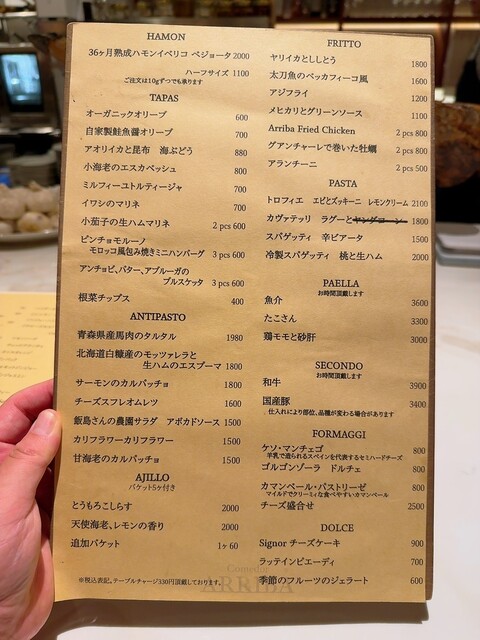 HAMON
36ヶ月熟成ハモンイベリコ ベジョータ 2000
ハーフサイズ 1100
ご注文は10gずつでも承ります
TAPAS
オーガニックオリーブ 600
自家製鮭魚醤オリーブ 700
アオリイカと昆布 海ぶどう 880
小海老のエスカベッシュ 800
ミルフィーユトルティージャ 700
イワシのマリネ 700
小茄子の生ハムマリネ 2 pcs 600
ピンチョモルーノ
モロッコ風包み焼きミニハンバーグ 3 pcs 600
アンチョビ、バター、アプルーガの
ブルスケッタ 3 pcs 600
根菜チップス 400
ANTIPASTO
青森県産馬肉のタルタル 1980
北海道白糠産のモッツァレラと
生ハムのエスプーマ 1800
サーモンのカルパッチョ 1800
チーズスフレオムレツ 1600
飯島さんの農園サラダ アボカドソース 1500
カリフラワーカリフラワー 1500
甘海老のカルパッチョ 1500
AJILLO
バケット5ヶ付き
とうもろこしらす 2000
天使海老、レモンの香り 2000
追加バケット 1ヶ 60
※税込表記。テーブルチャージ330円頂戴しております。
Comedor
ARRIBA
FRITTO
ヤリイカとししとう 1800
太刀魚のベッカフィーコ風 1600
アジフライ 1200
メヒカリとグリーンソース 1100
Arriba Fried Chicken 2 pcs 800
グアンチャーレで巻いた牡蠣 2 pcs 800
アランチーニ 2 pcs 500
PASTA
トロフィエ エビとズッキーニ レモンクリーム 2100
カヴァテッリ ラグーとヤングコーン 1800
スパゲッティ 辛ビアータ 1500
冷製スパゲッティ 桃と生ハム 2000
PAELLA
お時間頂戴します
魚介 3600
たこさん 3300
鶏モモと砂肝 3000
SECONDO
お時間頂戴します
和牛 3900
国産豚 3400
仕入れにより部位、品種が変わる場合があります
FORMAGGI
ケソ・マンチェゴ 800
羊乳で造られるスペインを代表するセミハードチーズ
ゴルゴンゾーラ ドルチェ 800
カマンベール・パストリーゼ 800
マイルドでクリーミィな食べやすいカマンベール
チーズ盛合せ 2500
DOLCE
Signor チーズケーキ 900
ラッテインピエーディ 700
季節のフルーツのジェラート 600